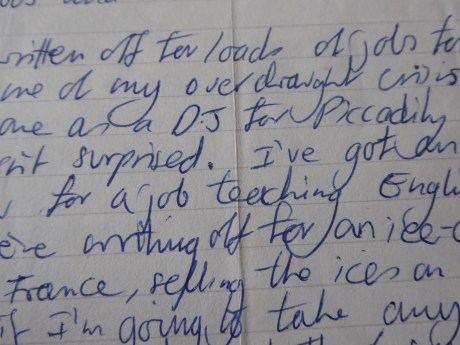 written off for loads of jobs to
me of my overdraught crisis
one as a DJ for Piccadilly
n't surprised. I've got an
for a job teaching Engli
writing off for an ice-c
France, selling the ices on
if I'm going to take any